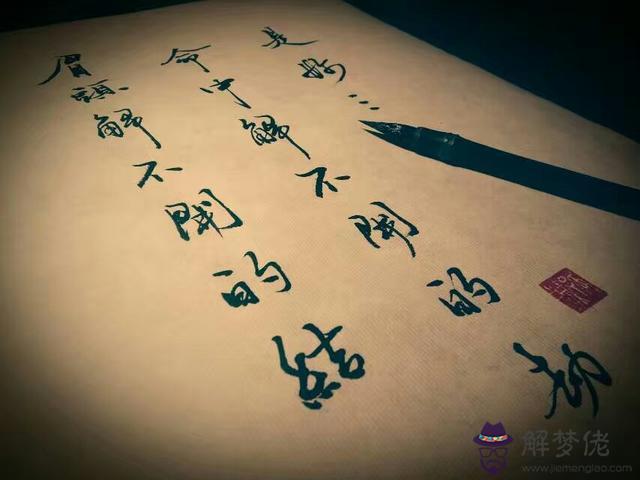 眉頭解不開的結
命中解不開的劫
是妳…
解梦佬
www.jiemenglao.com